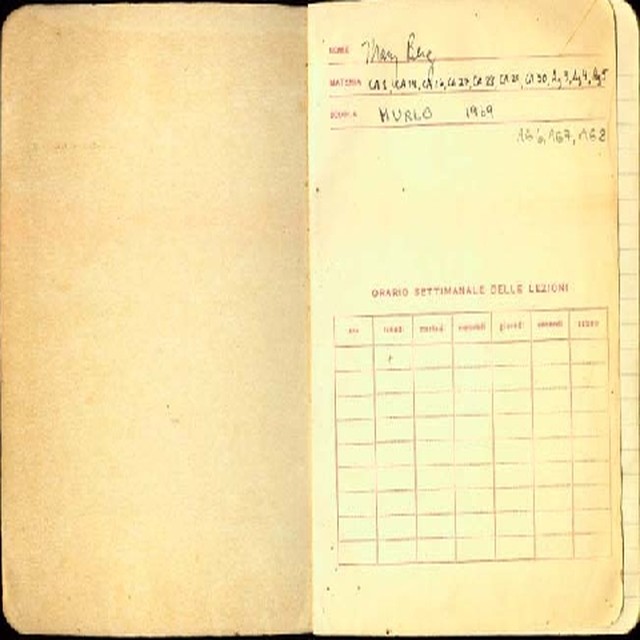 NOME Mary Berg
MATERIA CA 1, CA 14, CA 16, CA 27, CA 28, CA 29, CA 30, Ag 3, Ag 4, Ag 5
SCUOLA MURLO 1969
AG 6, AG 7, AG 2
ORARIO SETTIMANALE DELLE LEZIONI
ore lunedì martedì mercoledì giovedì venerdì sabato